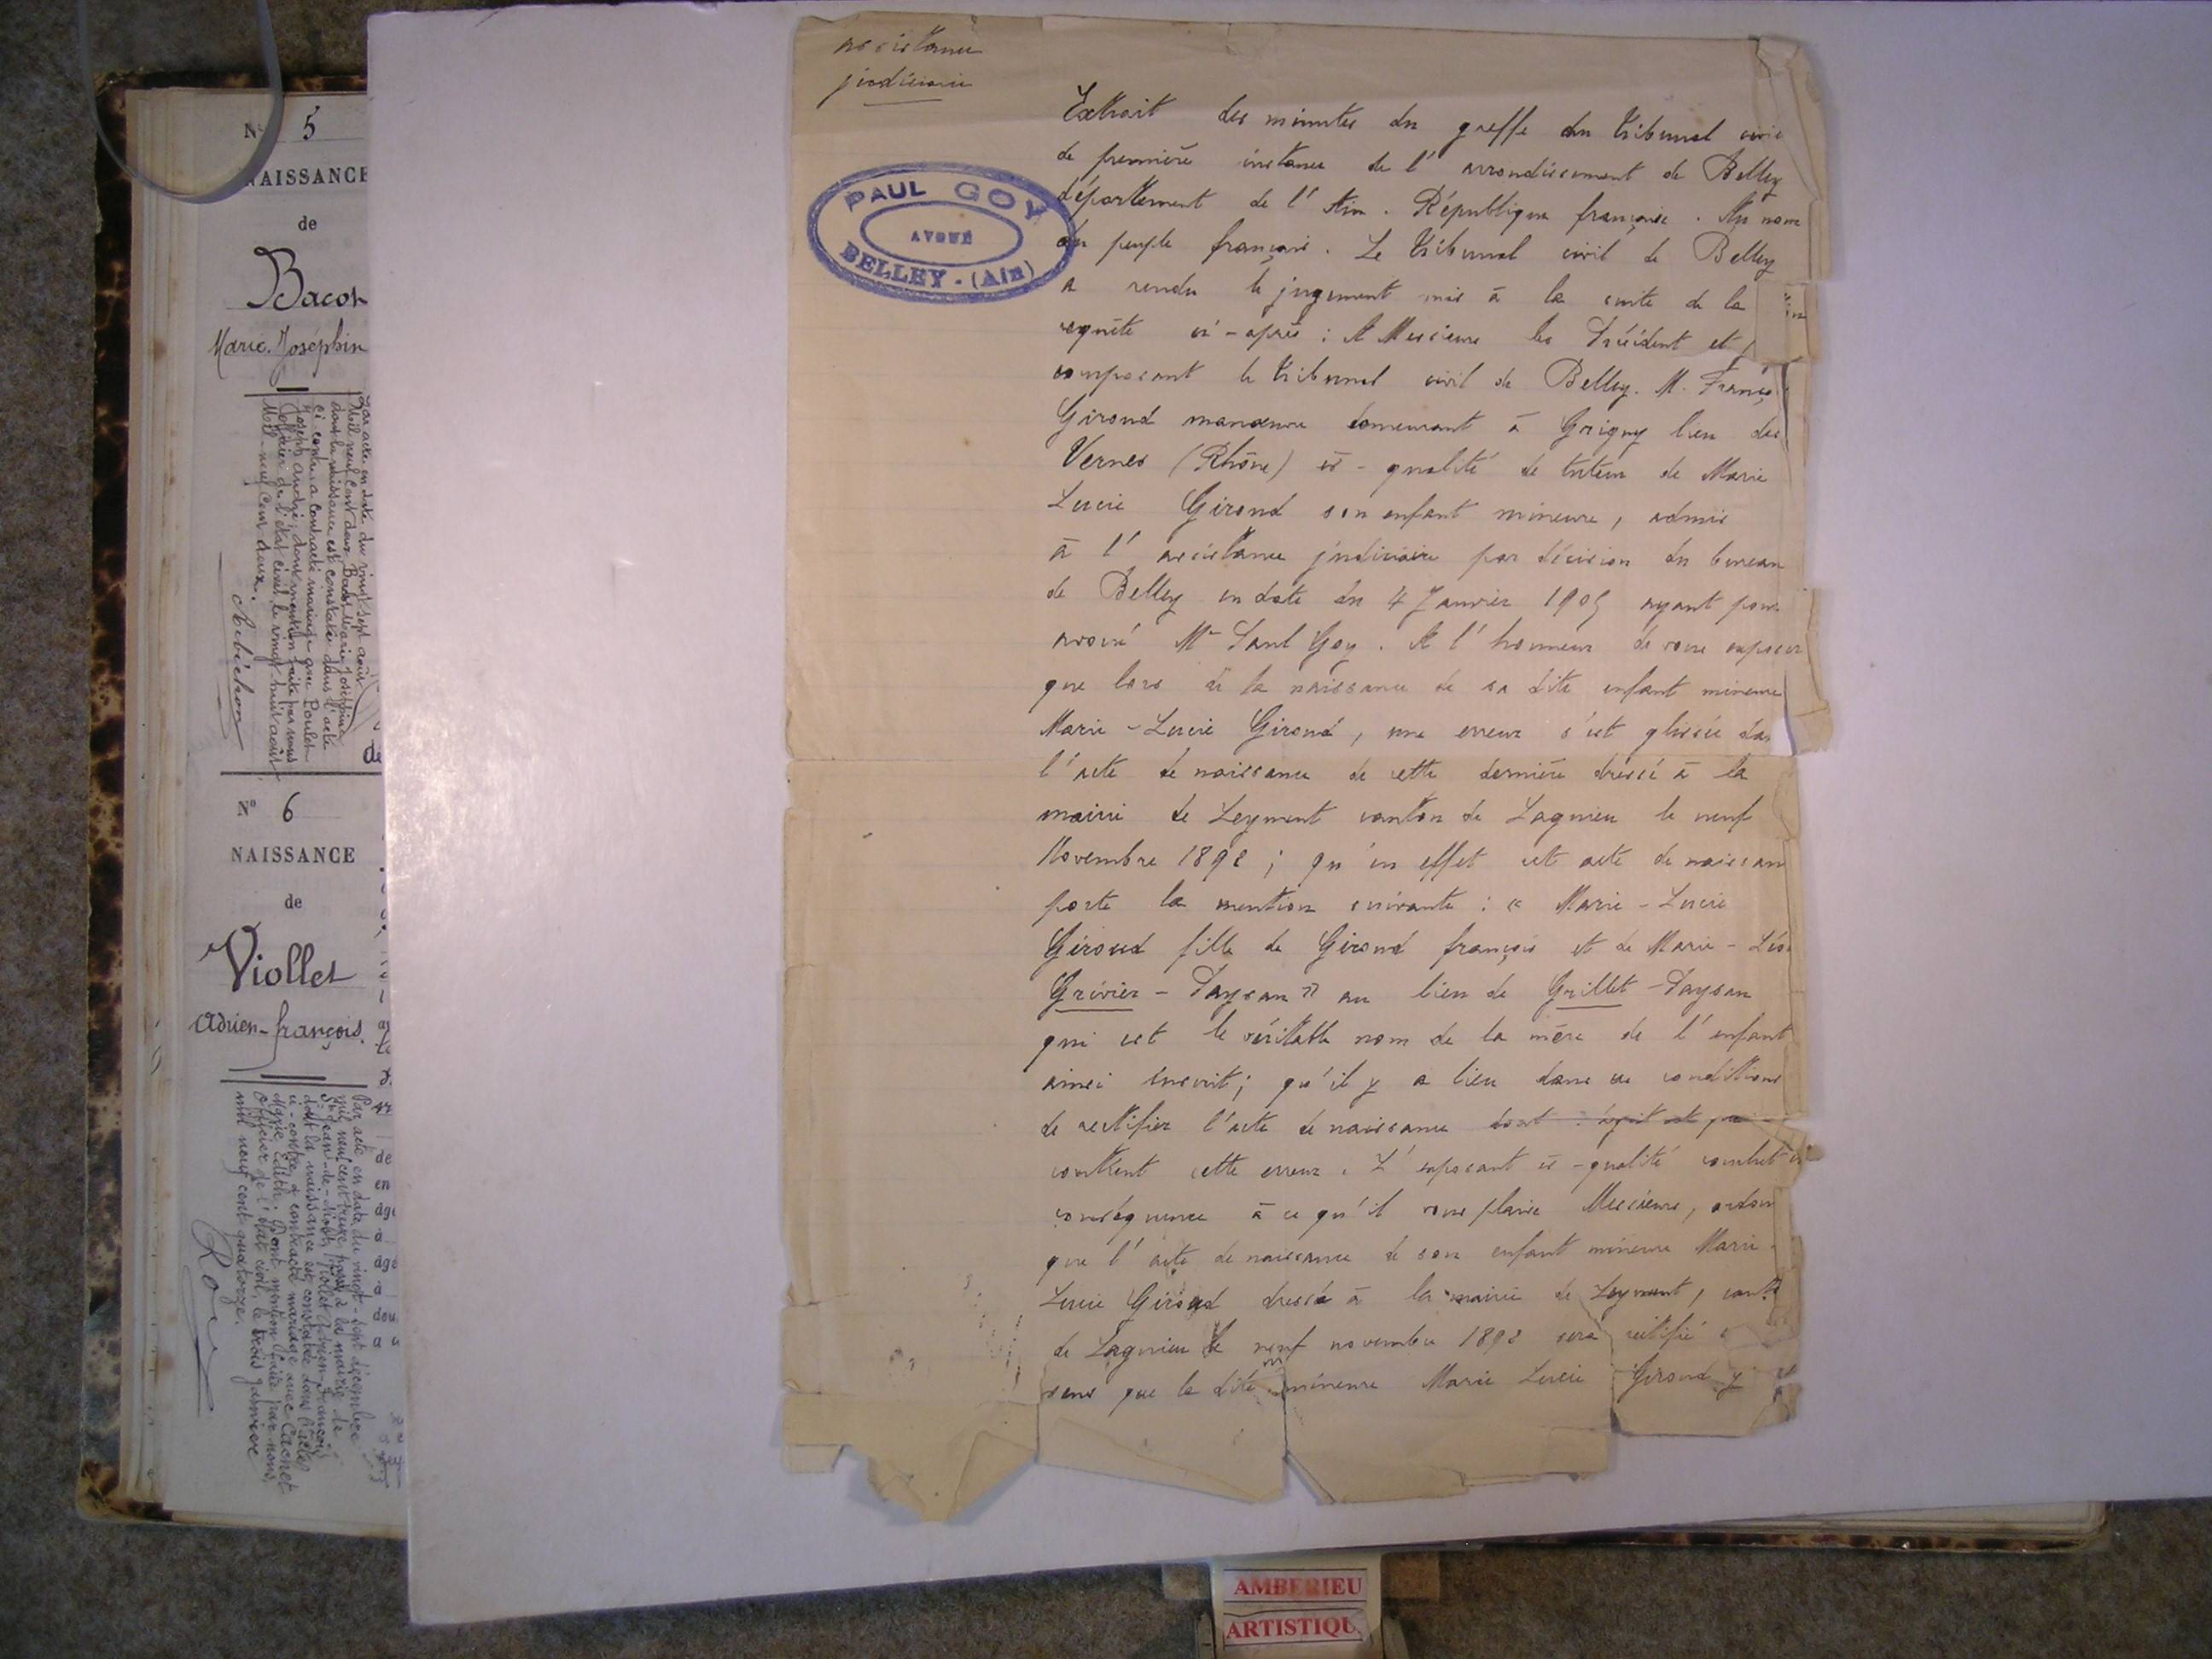 N° 5
NAISSANCE
de
Bacon
Marie-Joséphin
Par acte en date du vingt sept août
mil neuf cent deux Bacon Marie Joséphine
dont la naissance est constatée dans l'acte
ci-contre a contracté mariage avec Poulet
Joseph André, dont mention faite par nous
officier de l'état civil le vingt huit août
Mil neuf cent deux.
N° 6
NAISSANCE
de
Viollet
Adrien-françois.
Par acte en date du vingt-sept décembre
mil neuf cent treize passé à la mairie de
St Jean-de-Niost, Viollet Adrien-François
dont la naissance est constatée dans l'acte
ci-contre a contracté mariage avec Cachet
Marie Edith. Dont mention faite par nous,
officier de l'état civil, le trois janvier
mil neuf cent quatorze.
assistance
judiciaire
PAUL GOY
AVOUÉ
BELLEY - (Ain)
Extrait des minutes du greffe du tribunal civil
de première instance de l'arrondissement de Belley
département de l'Ain. République française. Au nom
du peuple français. Le tribunal civil de Belley
a rendu le jugement mis à la suite de la
requête ci-après : A Messieurs les Président et
composant le tribunal civil de Belley. M. Franço
Giroud manœuvre demeurant à Grigny lieu des
Vernes (Rhône) ès-qualité de tuteur de Marie
Lucie Giroud son enfant mineure, admis
à l'assistance judiciaire par décision du bureau
de Belley en date du 4 Janvier 1905 ayant pour
avoué Me Paul Goy. A l'honneur de vous exposer
que lors de la naissance de sa dite enfant mineure
Marie-Lucie Giroud, une erreur s'est glissée dans
l'acte de naissance de cette dernière dressé à la
mairie de Leyment canton de Lagnieu le neuf
Novembre 1892 ; qu'en effet cet acte de naissan
porte la mention suivante : « Marie-Lucie
Giroud fille de Giroud françois et de Marie-Léo
Grivier-Paysan » au lieu de Grillet-Paysan
qui est le véritable nom de la mère de l'enfant
ainsi inscrit ; qu'il y a lieu dans ces conditions
de rectifier l'acte de naissance dont s'agit et qui
contient cette erreur. L'exposant ès-qualité conclut en
conséquence à ce qu'il vous plaise Messieurs, ordon
que l'acte de naissance de son enfant mineure Marie-
Lucie Giroud dressé à la mairie de Leyment, cant
de Lagnieu le neuf novembre 1892 sera rectifié
sens que la dite mineure Marie Lucie Giroud y
AMBERIEU
ARTISTIQU